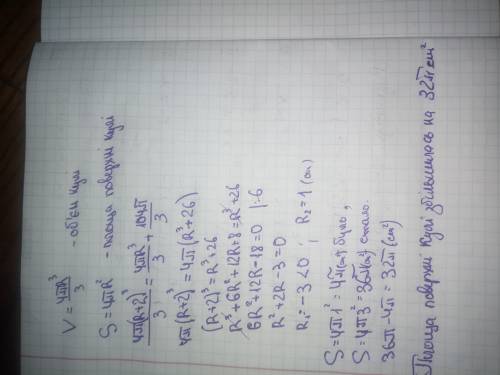 V = 4πR³/3 - об'єм кулі
S = 4πR² - площа поверхні кулі
4π(R+2)³/3 = 4πR³/3 + 104π/3
4π(R+2)³ = 4π(R³+26)
(R+2)³ = R³+26
R³+6R²+12R+8 = R³+26
6R²+12R-18=0 |:6
R²+2R-3=0
R₁=-3<0; R₂=1 (см)
S=4π1²=4π(см²) було;
S=4π3²=36π(см²) стало.
36π-4π=32π(см²)
Площа поверхні кулі збільшилась на 32π см²